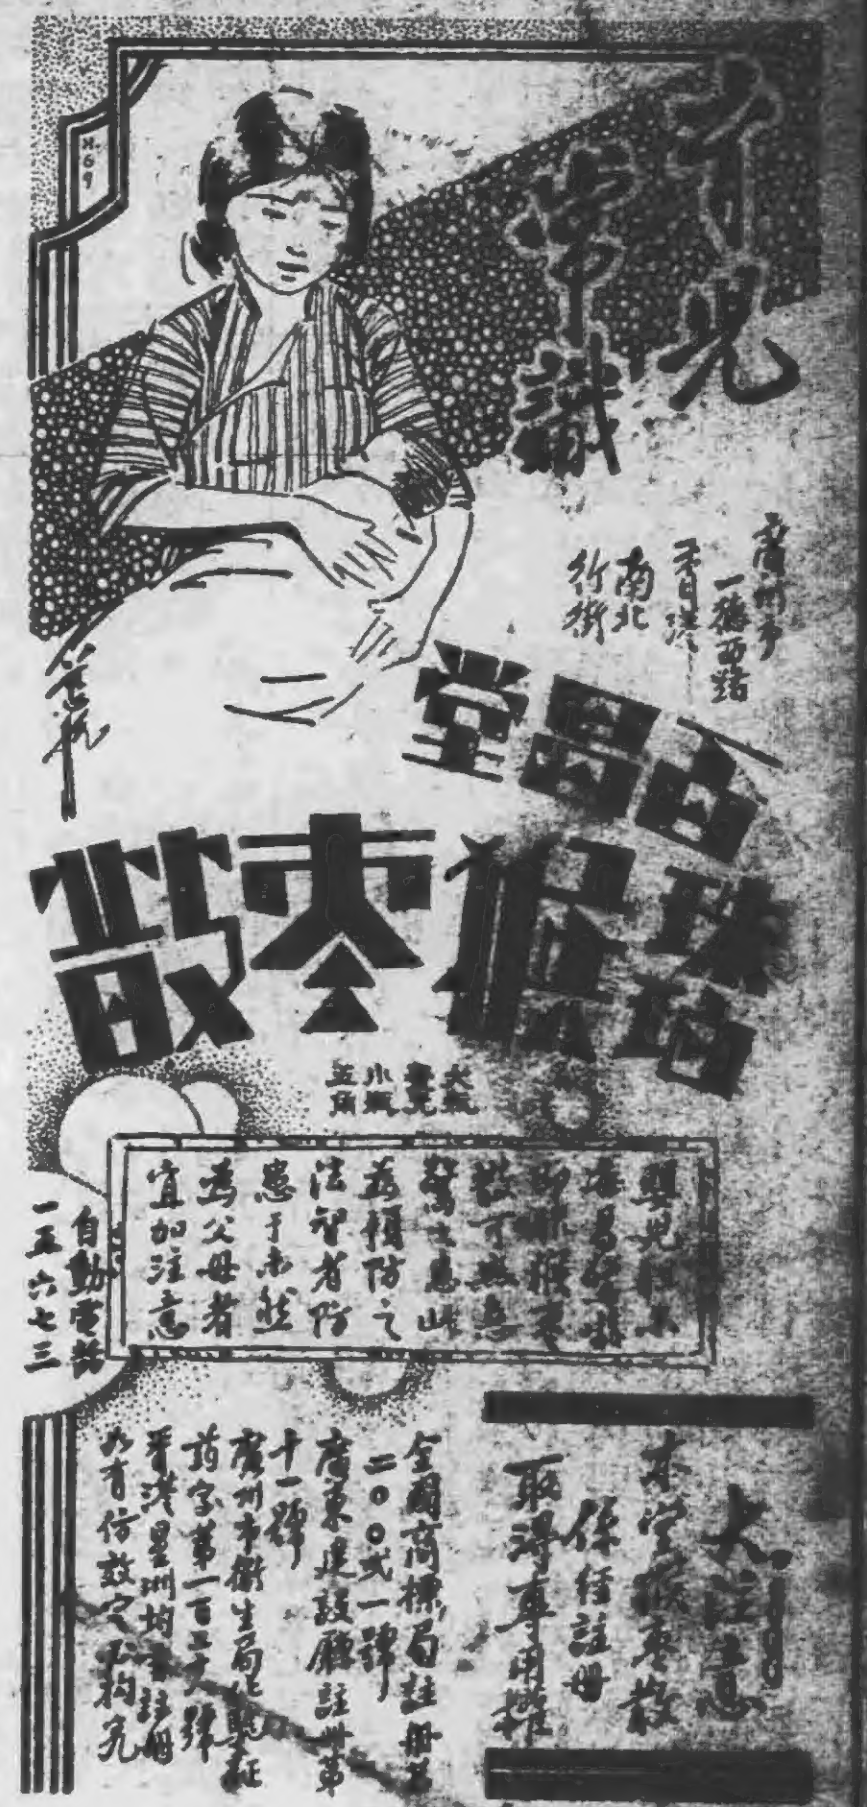 育兒
常識
廣州市
一德西路
香港
南北
行街
百昌堂
珠珀
猴棗散
大瓶
壹元
小瓶
五角
嬰兒胆小
容易驚嚇
猴棗
散可無急
驚之患此
為預防之
法智者防
患于未然
為父母者
宜加注意
自動電話
一五六七三
大注意
本堂猴棗散
係經註冊
取得專用權
全國商標局註冊第
二〇〇弍一號
廣東建設廳註冊第
十一號
廣州市衛生局化驗証
葯字第一百三十八號
香港星洲均有註冊
如有仿效定必拘究